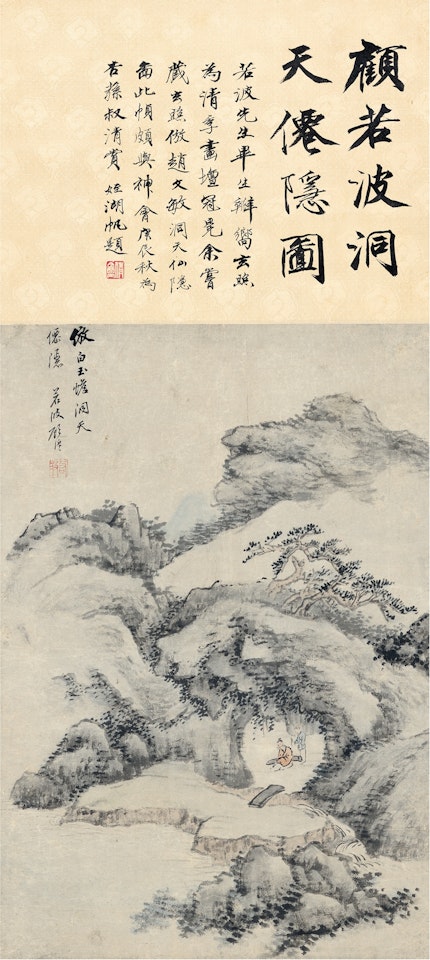 顧若波洞
天僊隱圖
若波先生畢生瓣嚮玄照
為清季畫壇冠冕余嘗
藏玄照倣趙文敏洞天仙隱
啚此幀頗與神會庚辰秋為
叔清賞 姪湖帆題
倣白玉蟾洞天
僊隱 若波顧澐